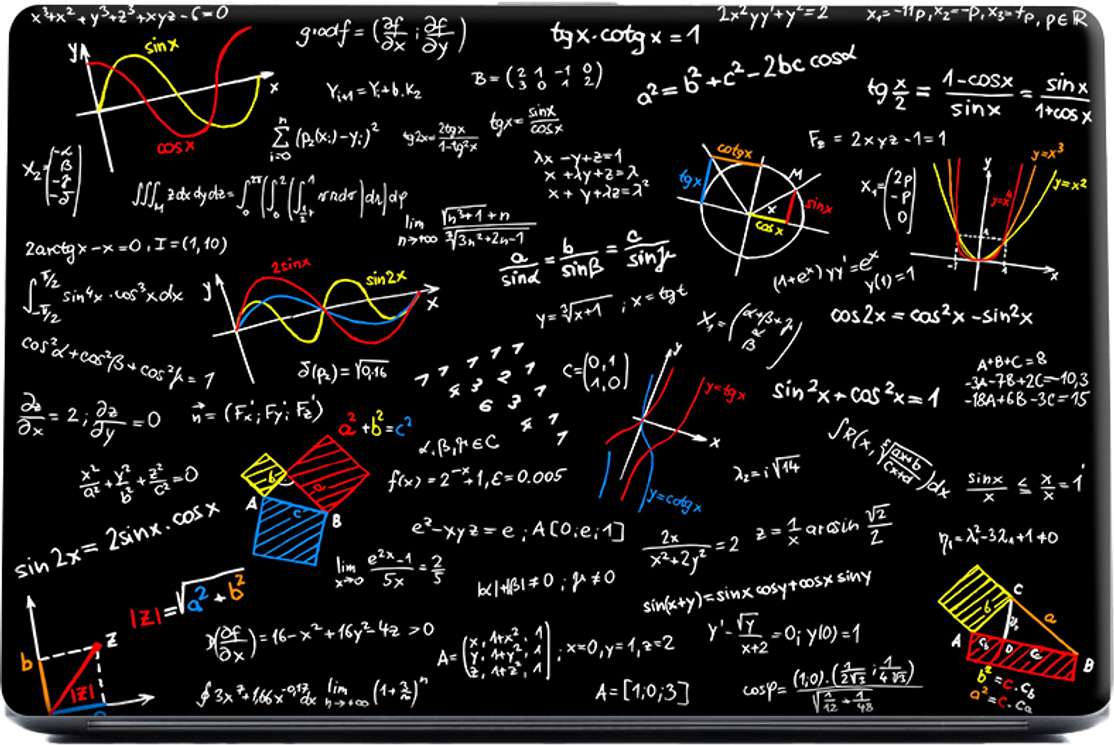 x³+x²+y³+z³+xyz-6=0
gradf=(∂f/∂x ; ∂f/∂y)
tgx·cotgx=1
2x²yy'+y²=2
x₁=-11p, x₂=-p, x₃=+p, p∈ℝ
y sinx x cosx
Y_{i+1}=Y_i+b.K₂
B=(2 1 -1 0 / 3 0 1 2)
a²=b²+c²-2bc cosα
tg x/2 = (1-cosx)/sinx = sinx/(1+cosx)
∑_{i=0}^{n}(p₂(x_i)-y_i)²
tg2x=2tgx/(1-tg²x)
tgx=sinx/cosx
F_z=2xyz-1=1
X₂=(-α β -γ -δ)
λx-y+z=1
x+λy+z=λ
x+y+λz=λ²
cotgx tgx M sinx x cosx
X₁=(2p -p 0)
y y=x³ y=x² y=x⁴ 1 -1 1 x
lim_{n→+∞} (√(n³+1)+n)/∛(3n²+2n-1)
2arctgx-x=0, I=(1,10)
a/sinα = b/sinβ = c/sinγ
(1+eˣ)yy'=eˣ
y(1)=1
∫_{-π/2}^{π/2} sin⁴x·cos³xdx
y 2sinx sin2x x
y=∛(x+1) ; x=tgt
X₁=(α+β+γ α β)
cos2x=cos²x-sin²x
cos²α+cos²β+cos²γ=1
δ(p₂)=√0,16
C=(0,1 1,0)
y y=tgx x y=cotgx
A+B+C=8
-3A-7B+2C=-10,3
-18A+6B-3C=15
sin²x+cos²x=1
∂z/∂x=2 ; ∂z/∂y=0
n⃗=(F_x';F_y';F_z')
a²+b²=c²
b a c A B
α,β,γ∈C
x²/a²+y²/b²+z²/c²=0
f(x)=2⁻ˣ+1, ε=0.005
λ₂=i√14
sinx/x ≤ x/x=1
sin2x=2sinx·cosx
e²-xyz=e ; A[0;e;1]
2x/(x²+2y²)=2
z=1/x arcsin √2/2
η₁=λ₁²-3λ₁+1≠0
lim_{x→0} (e^{2x}-1)/5x=2/5
|α|+|β|≠0 ; γ≠0
sin(x+y)=sinx cosy+cosx siny
|z|=√(a²+b²)
b z |z| a
(∂f/∂x)=16-x²+16y²-4z>0
A=(x, 1+x², 1 / y, 1+y², 1 / z, 1+z², 1) ; x=0, y=1, z=2
y'-√y/(x+2)=0; y(0)=1
C b a A D B
b²=c·c_b
a²=c·c_a
lim_{n→+∞}(1+3/n)ⁿ
A=[1;0;3]
cosφ=((1;0).(1/(2√3);1/(4√3)))/√(1/12+1/48)